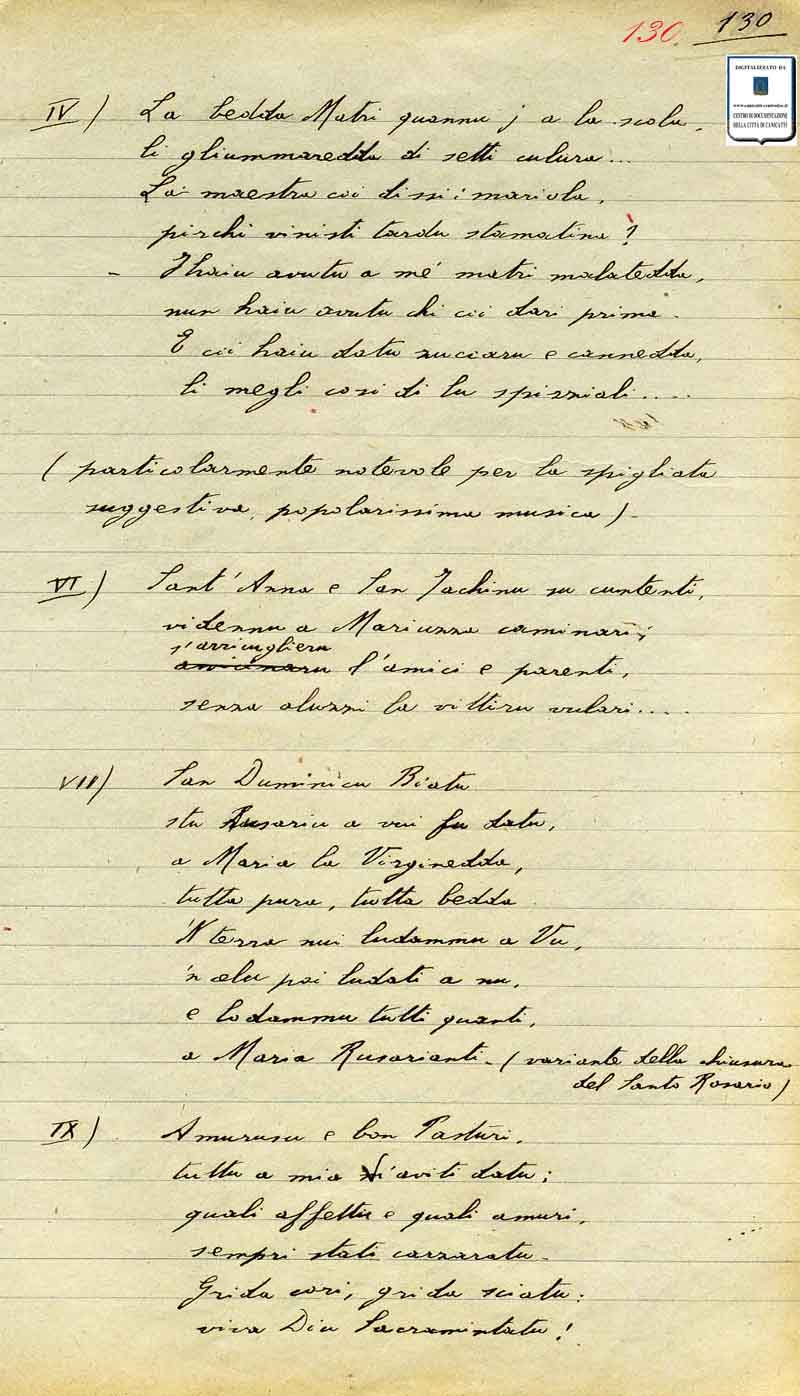 130. 130
DIGITALIZZATO DA
CENTRO DI DOCUMENTAZIONE
DELLA CITTÀ DI CANICATTÌ
IV) La bedda Matri quannu j a la scola,
li gliummaredda di setti culura...
La maestra cci dissi: mariola,
pirchì vinisti tardu stamatina?
- Ihaiu avutu a mé matri malatedda,
nun haiu avutu chi cci dari prima.
E cci haiu datu zuccaru e cannedda,
li megli cosi di lu spizziali....
(particolarmente notevole per la spigliata
suggestiva, popolarissima musica)-
VI) Sant'Anna e San Jachinu su cuntenti,
vidennu a Mariuzza caminari;
s'arricuglieru
l'amici e parenti,
senza aluzzi la vittiru vulari....
VII) San Duminicu Biatu
stu Rusariu a vui fu datu,
a Maria la Virginedda,
tutta pura, tutta bedda
'N terra nui ludammu a Vu,
'n celu poi ludati a nu,
e lodammu tutti quanti,
a Maria Rusarianti-(variante della chiusura
del Santo Rosario)
IX) Amurusu e bon Pasturi,
tuttu a mia v'aviti datu;
quali affettu e quali amuri,
sempri stati carzaratu-
Grida cori, grida sciatu:
viva Diu Sacramintatu!